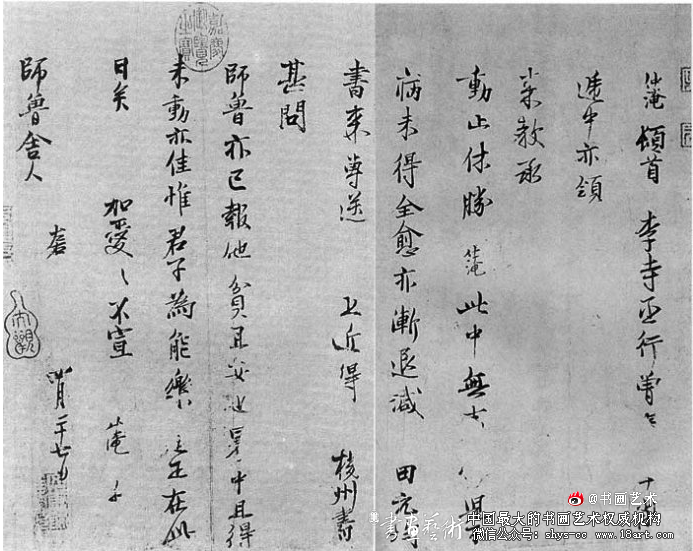 仲淹頓首 李寺丞行曾
遞中亦領
來教承
動止休勝 仲淹 此中無大
病未得全愈亦漸退減 田元鈞
書來專送 上近得 揚州書
甚問
師魯亦已報他貧且安也暑中且得
未動亦佳惟君子為能樂 正在此
日矣 加愛〻不宣 仲淹
師魯舍人
四月二十七日
@书画艺术
中国最大的书画艺术权威机构
微信公众号: shys-cc www.18art.com
書畫藝術